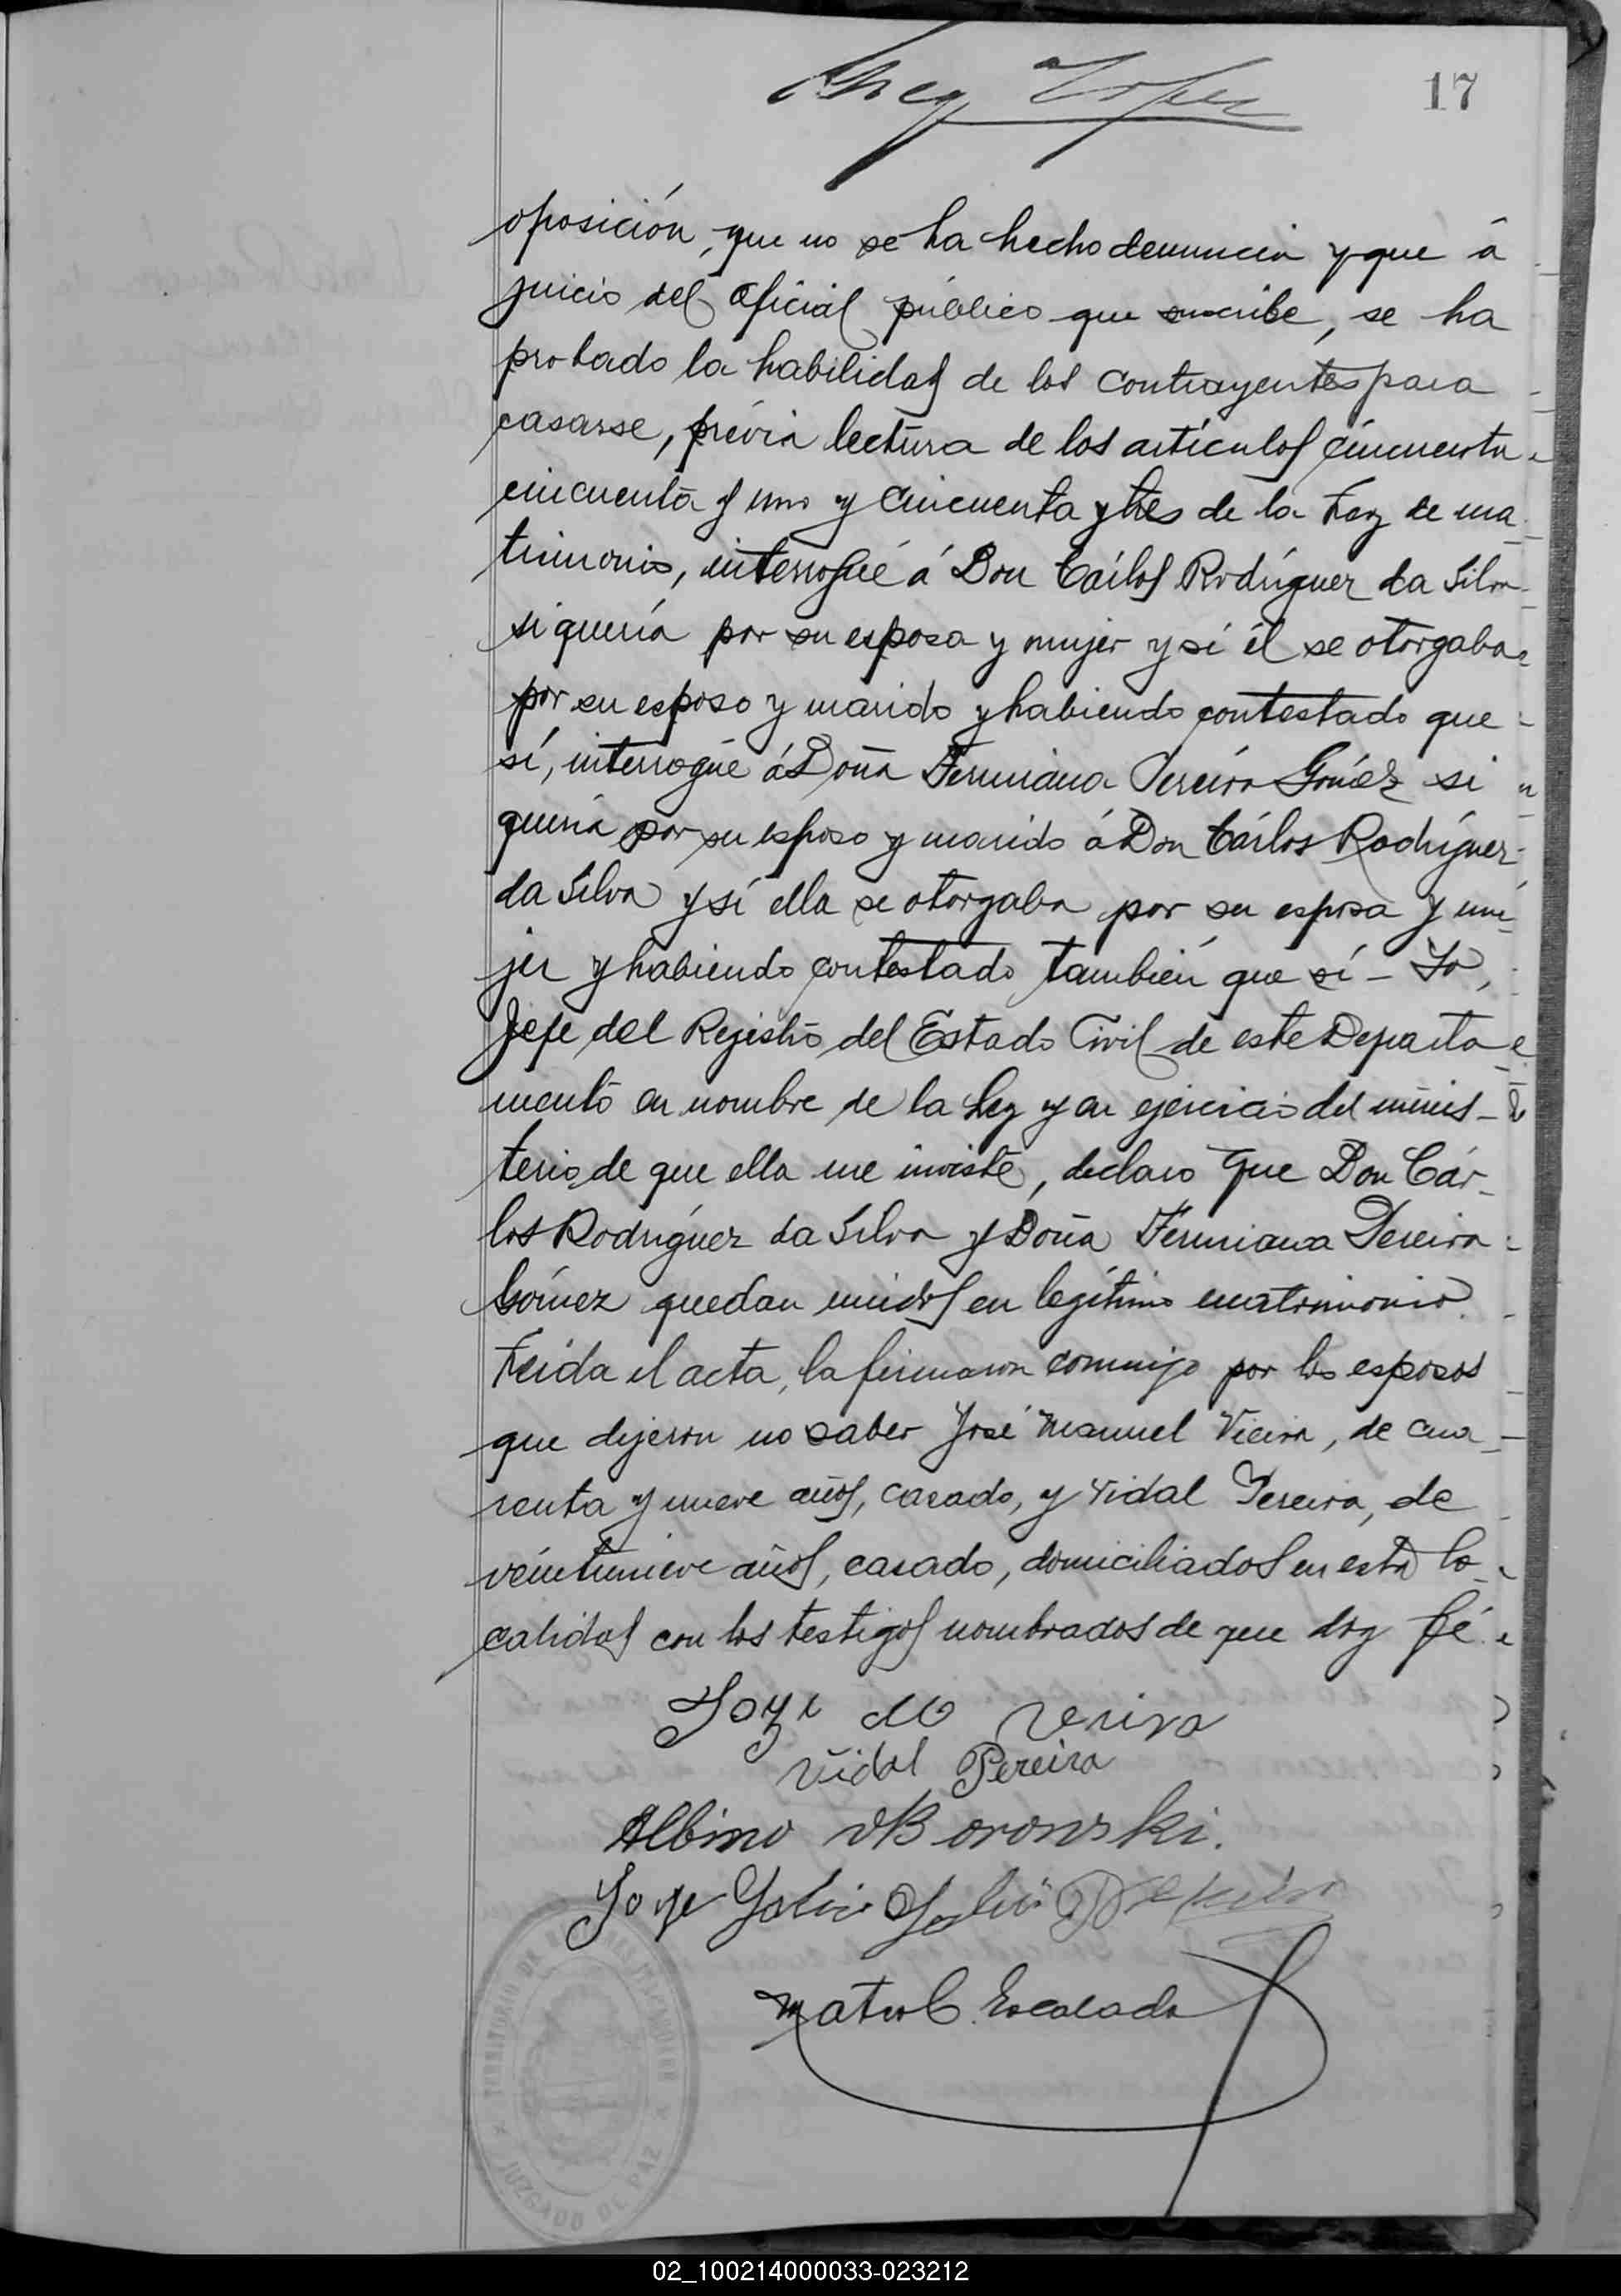 17
oposición, que no se ha hecho denuncia y que á
juicio del Oficial público que suscribe, se ha
probado la habilidad de los contrayentes para
casarse, prévia lectura de los artículos cincuenta
cincuenta y uno y cincuenta y tres de la Ley de ma
trimonio, interrogué á Don Cárlos Rodríguez da Silva
si quería por su esposa y mujer y si él se otorgaba
por su esposo y marido y habiendo contestado que
sí, interrogué á Doña Fermiana Pereira Gómez si
quería por su esposo y marido á Don Cárlos Rodríguez
da Silva y si ella se otorgaba por su esposa y mu
jer y habiendo contestado también que sí - Yo,
Jefe del Registro del Estado Civil de este Departa
mento en nombre de la Ley y en ejercicio del minis-
terio de que ella me inviste, declaro que Don Cár-
los Rodríguez da Silva y Doña Fermiana Pereira
Gómez quedan unidos en legítimo matrimonio.
Leida el acta, la firmaron conmigo por los esposos
que dijeron no saber José Manuel Vieira, de cua
renta y nueve años, casado, y Vidal Pereira, de
veintinueve años, casado, domiciliados en esta lo
calidad con los testigos nombrados de que doy fé.
Joze M Veiira
Vidal Pereira
Albino Borowski.
Jose
Mateo C. Escalada
TERRITORIO DE
JUZGADO DE PAZ
02_100214000033-023212